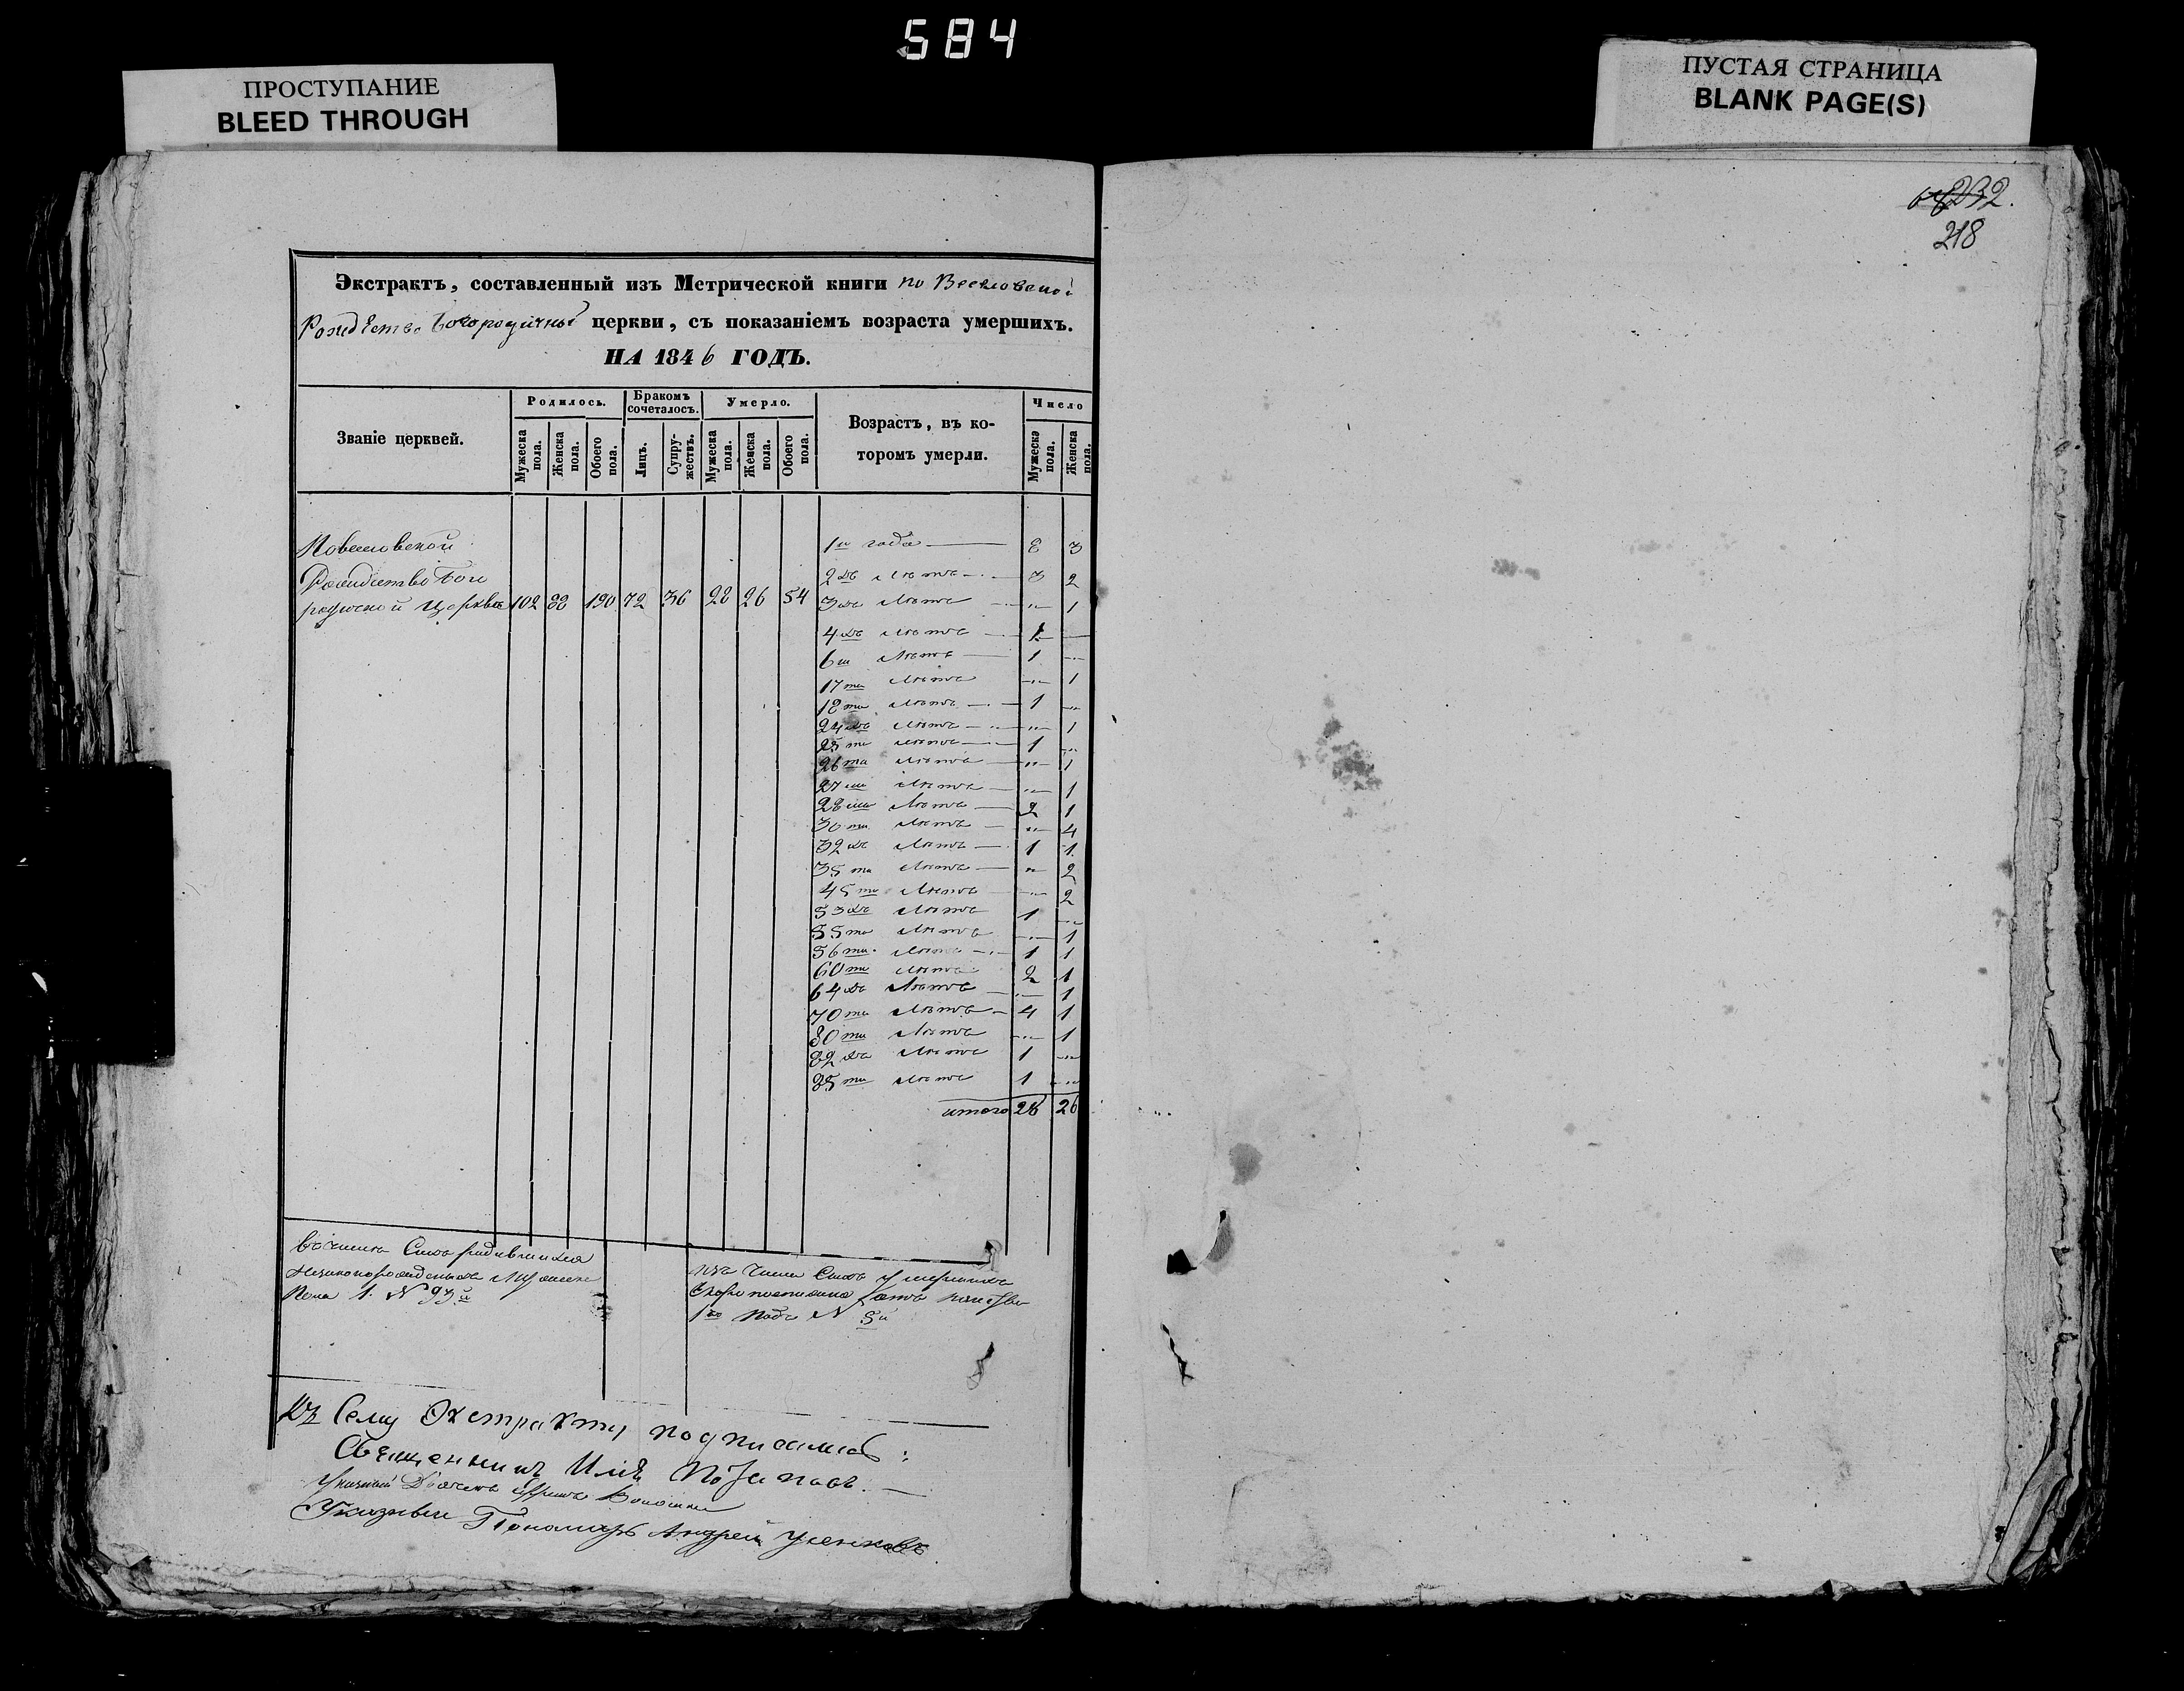 584
ПРОСТУПАНИЕ
BLEED THROUGH
ПУСТАЯ СТРАНИЦА
BLANK PAGE(S)
232.
218
Экстрактъ, составленный изъ Метрической книги по
Рождество Богородичной церкви, съ показаніемъ возраста умершихъ.
НА 1846 ГОДЪ.
Званіе церквей.
Родилось.
Бракомъ сочеталось.
Умерло.
Возрастъ, въ которомъ умерли.
Число
Мужеска пола.
Женска пола.
Обоего пола.
Лицъ.
Супружествъ.
Мужеска пола.
Женска пола.
Обоего пола.
Мужеска пола.
Женска пола.
Рождество Бого
родичной Церкви 102 88 190 72 36 28 26 54
1го года 8 3
2хъ летъ 3 2
3хъ летъ " 1
4хъ летъ 1 "
6ти летъ 1 "
17ти летъ " 1
18ти летъ 1 "
24хъ летъ " 1
25ти летъ 1 "
26ти летъ " 1
27ми летъ " 1
28ми летъ 2 1
30ти летъ " 4
32хъ летъ 1 1
35ти летъ " 2
45ти летъ " 2
53хъ летъ 1 "
55ти летъ " 1
56ти летъ 1 1
60ти летъ 2 1
64хъ летъ " 1
70ти летъ 4 1
80ти летъ " 1
82хъ летъ 1 "
85ти летъ 1 "
итого 28 26
въ числе сихъ родившихся
незаконорожденныхъ мужеска
пола 1. № 93й
изъ числа сихъ умершихъ
1го № 5й
Къ сему Екстракту подписались:
Священникъ Илія Потаповъ.
Указный Дьячекъ
Указный Пономарь Андрей